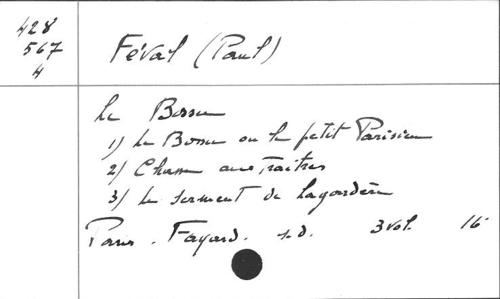 428
567
4
Féval (Paul)
Le Bossu
1) Le Bossu ou le petit Parisien
2) Chasse aux Traîtres
3) Le serment de Lagardère
Paris. Fayard. s.d. 3 vol. 16°